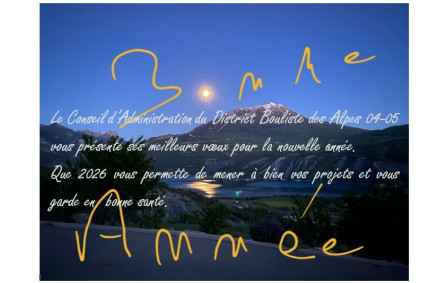 Bonne
Le Conseil d'Administration du District Bouliste des Alpes 04-05
vous présente ses meilleurs vœux pour la nouvelle année.
Que 2026 vous permette de mener à bien vos projets et vous
garde en bonne santé.
Année